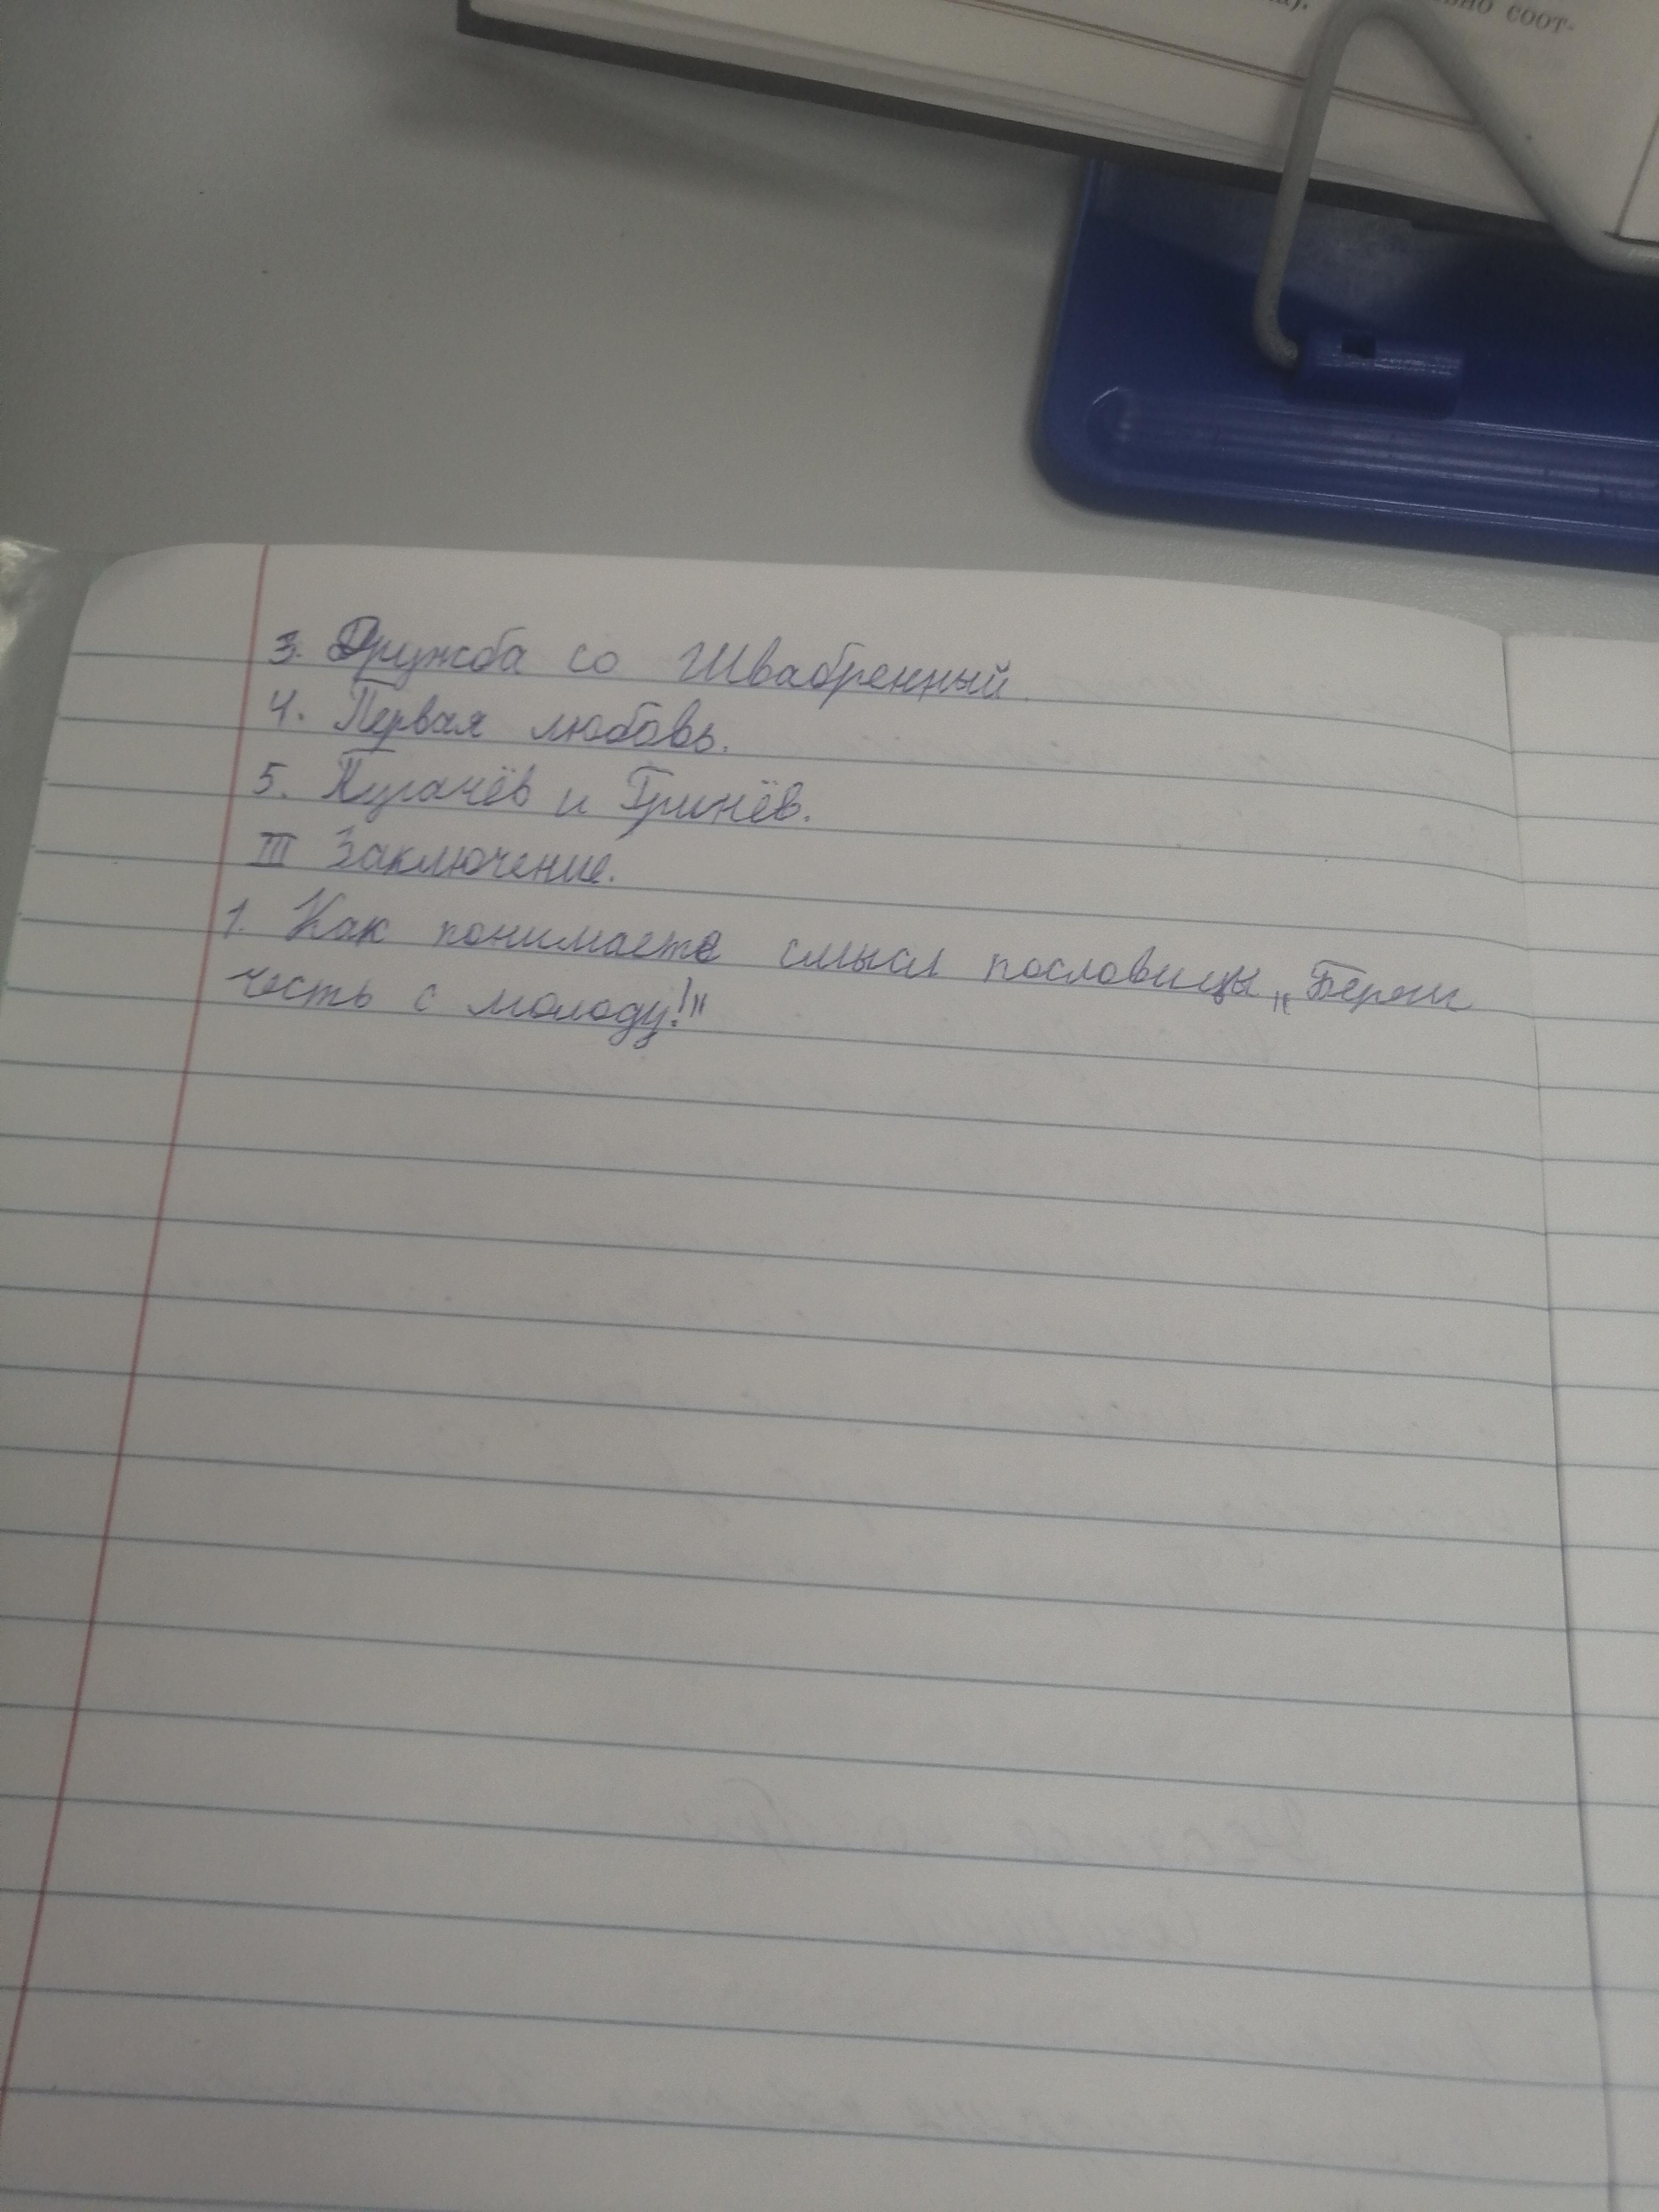 соот-
3. Дружба со Швабренный.
4. Первая любовь.
5. Пугачёв и Гринёв.
III Заключение.
1. Как понимаете смысл пословицы „Береги
честь с молоду!"